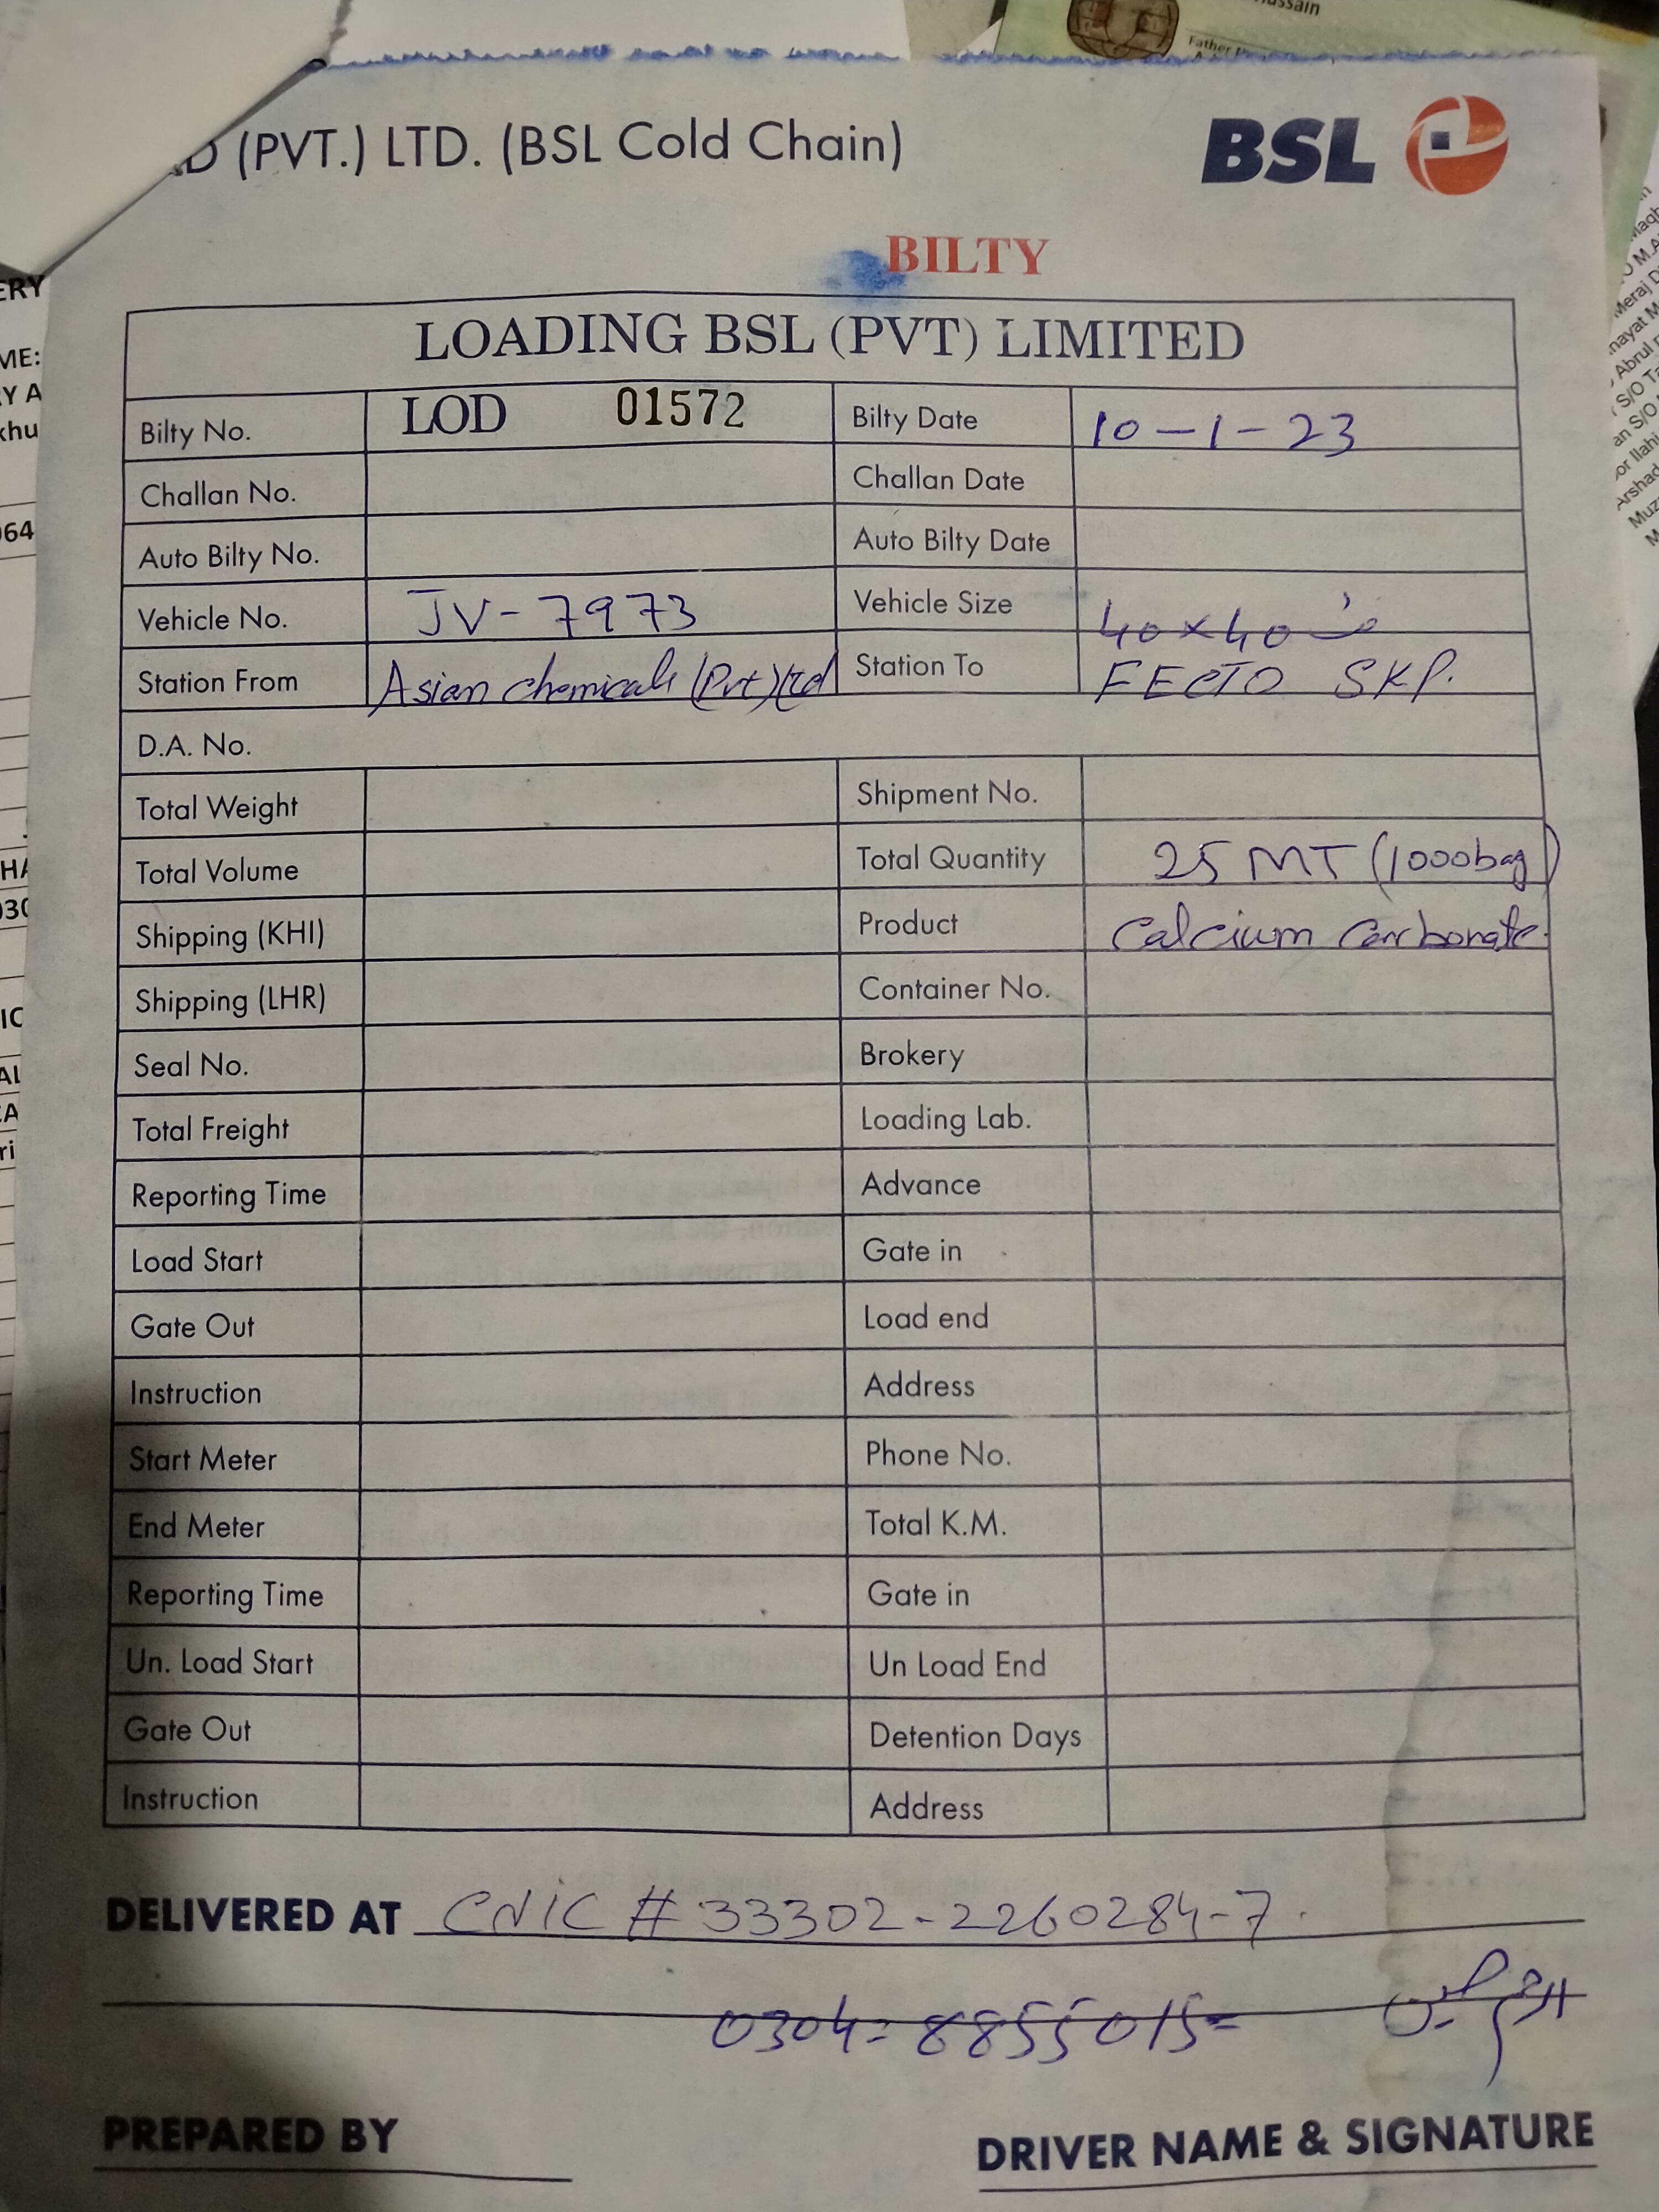 (PVT.) LTD. (BSL Cold Chain)
BSL
BILTY
LOADING BSL (PVT) LIMITED
Bilty No. LOD 01572 Bilty Date 10-1-23
Challan No. Challan Date
Auto Bilty No. Auto Bilty Date
Vehicle No. JV-7973 Vehicle Size 40x40
Station From Asian chemicals (Pvt) Ltd Station To FECTO SKP.
D.A. No.
Total Weight Shipment No.
Total Volume Total Quantity 25 MT (1000bag)
Shipping (KHI) Product Calcium Carbonate.
Shipping (LHR) Container No.
Seal No. Brokery
Total Freight Loading Lab.
Reporting Time Advance
Load Start Gate in
Gate Out Load end
Instruction Address
Start Meter Phone No.
End Meter Total K.M.
Reporting Time Gate in
Un. Load Start Un Load End
Gate Out Detention Days
Instruction Address
DELIVERED AT CNIC # 33302-2260284-7.
0304=8855015=
PREPARED BY
DRIVER NAME & SIGNATURE